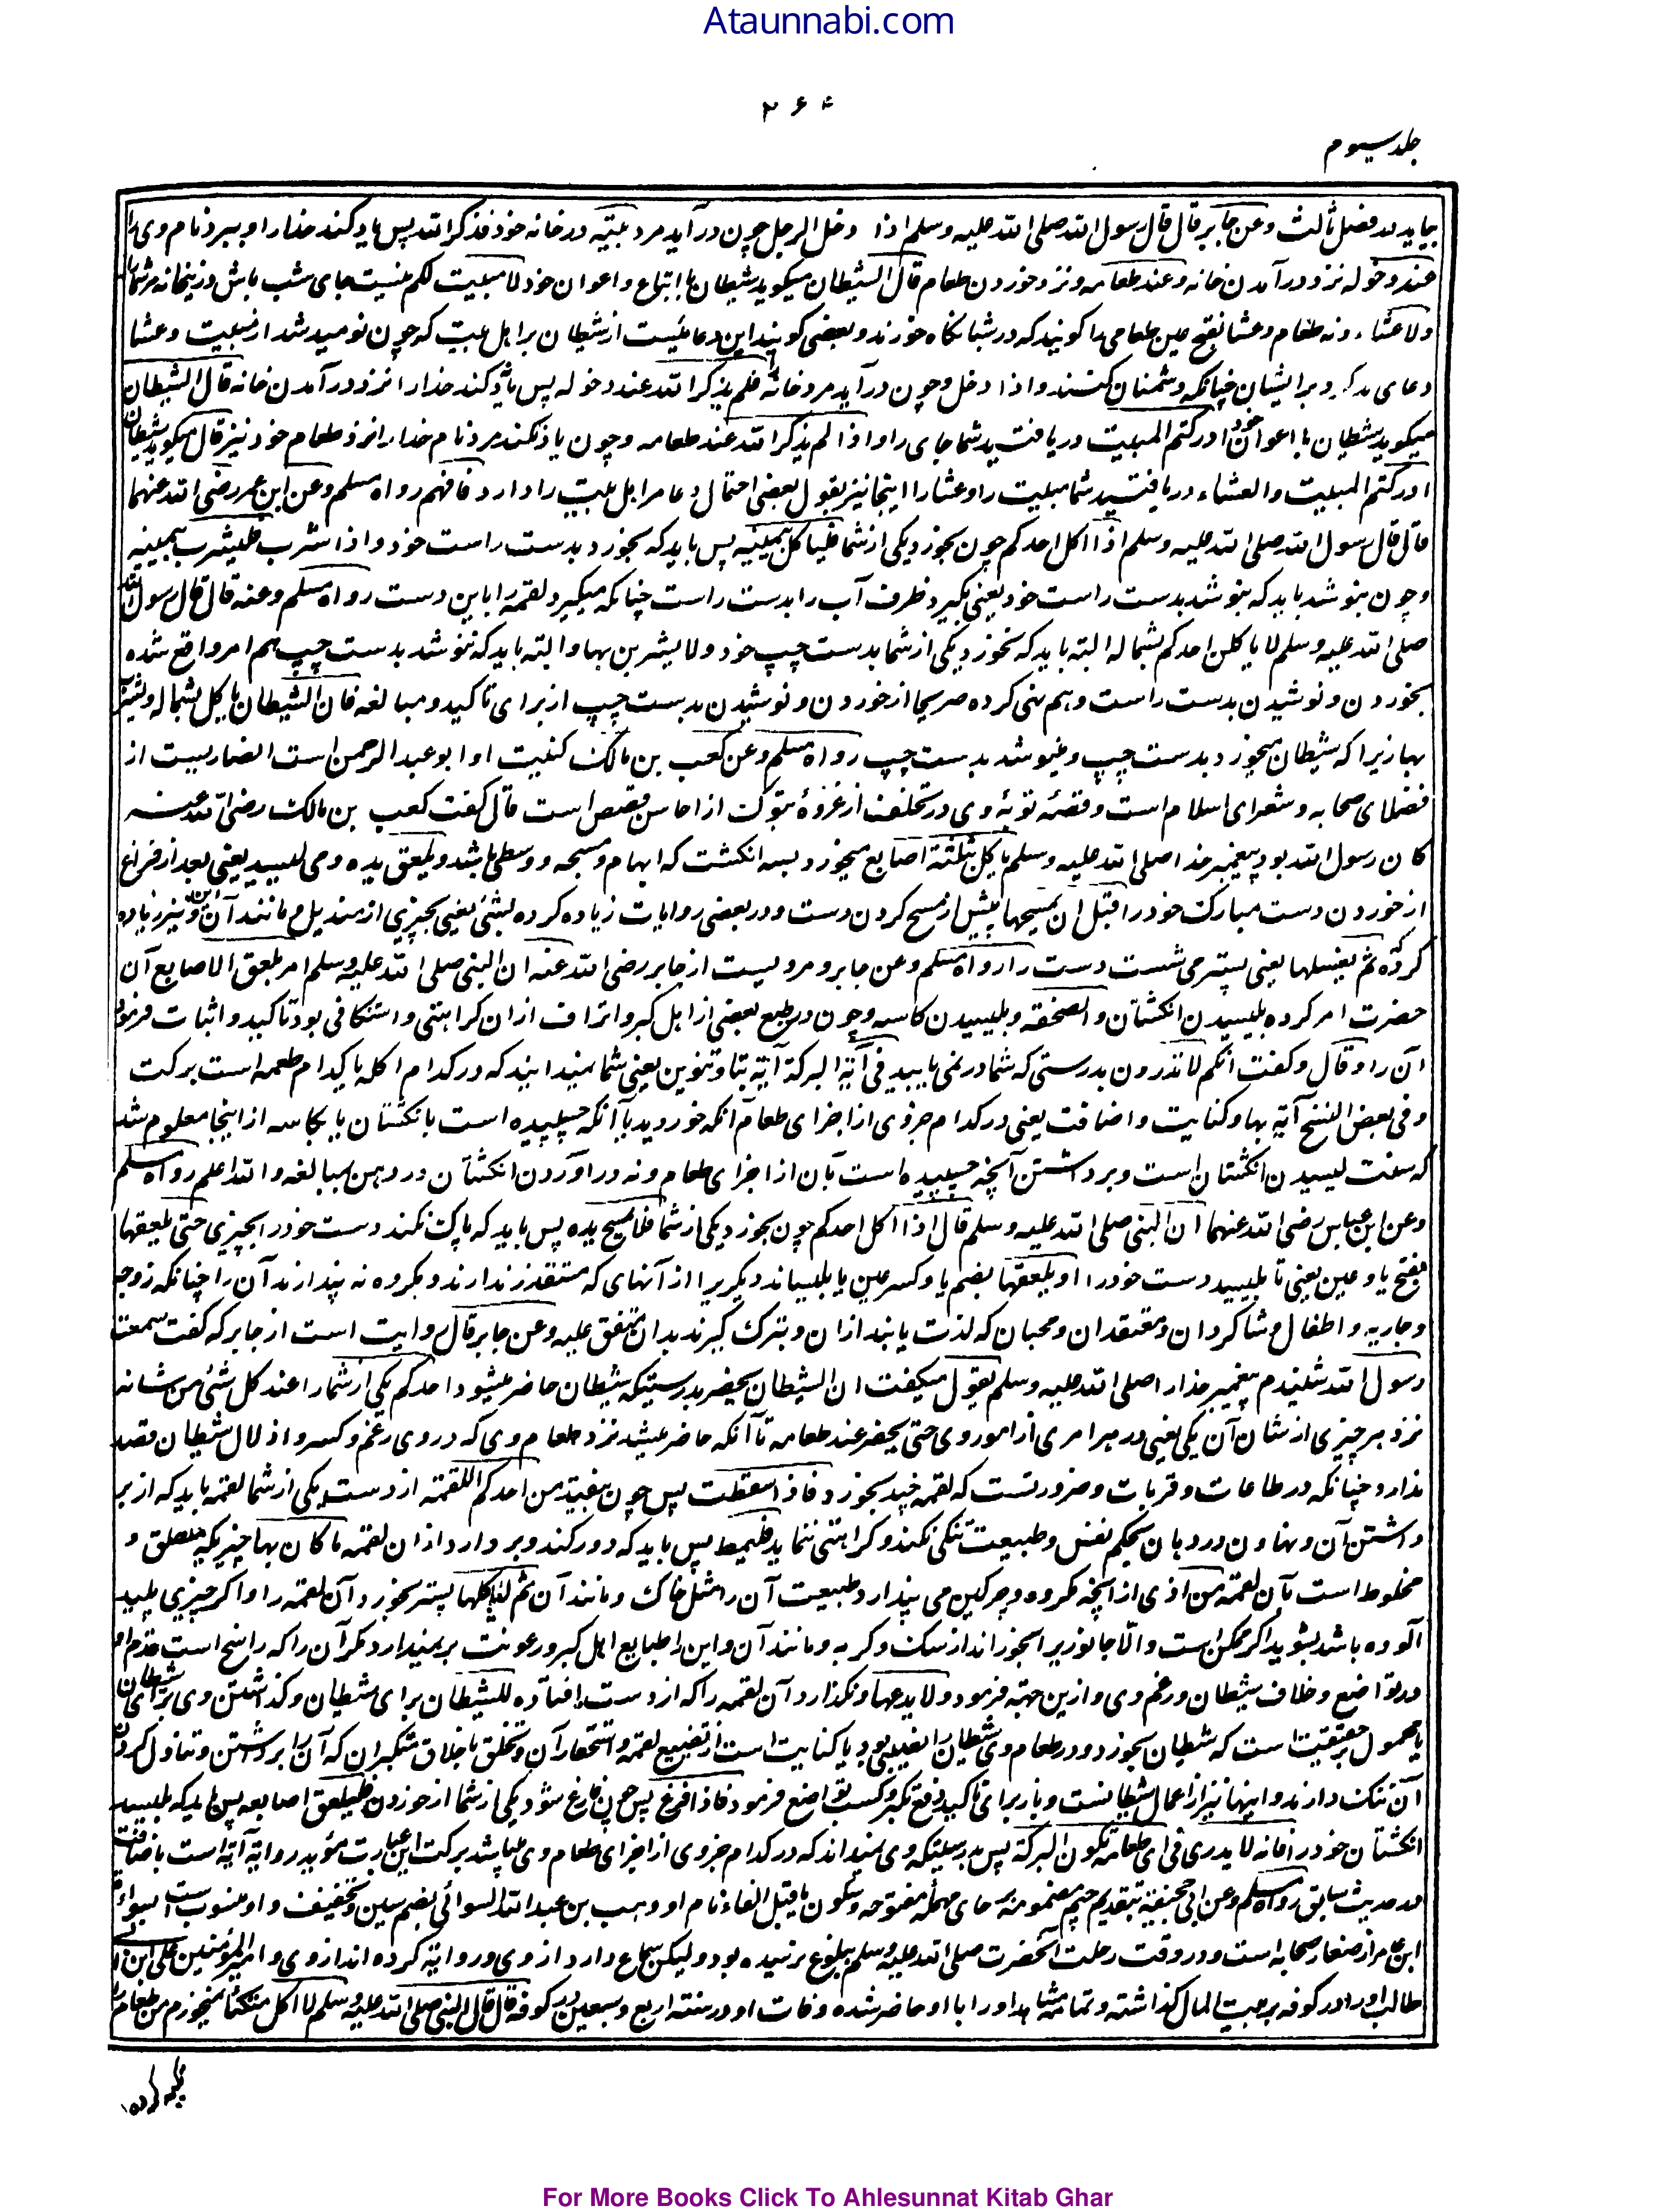 Ataunnabi.com
۲۶۴
جلد سیوم
بیاید در فصل ثالث وعن جابر قال قال رسول الله صلی الله علیه وسلم اذا دخل الرجل چون در آید مرد بیته در خانه خود فذکر الله پس یاد کند خدا را و ببرد نام وی را
عند دخوله نزد در آمدن خانه وعند طعامه ونزد خوردن طعام قال الشیطان میگوید شیطان با اتباع واعوان خود لا مبیت لکم نیست جای شب باش درینخانه مر شما را
ولا عشاء ونه طعام وعشا بفتح عین طعامی را گویند که در شبانگاه خورند وبعضی گویند این دعائیست از شیطان بر اهل بیت که چون نومید شد از مبیت وعشا
دعای بد کرد بر ایشان چنانکه دشمنان کنند واذا دخل وچون در آید مرد خانه فلم یذکر الله عند دخوله پس یاد نکند خدا را نزد در آمدن خانه قال الشیطان
میگوید شیطان با اعوان خود ادرکتم المبیت دریافتید شما جای را واذا لم یذکر الله عند طعامه وچون یاد نکند مرد نام خدا را نزد طعام خود نیز قال میگوید شیطان
ادرکتم المبیت والعشاء دریافتید شما مبیت را وعشا را اینجا نیز بقول بعضی احتمال دعا مر اهل بیت را دارد فافهم رواه مسلم وعن ابن عمر رضی الله عنهما
قال قال رسول الله صلی الله علیه وسلم اذا اکل احدکم چون بخورد یکی از شما فلیاکل بیمینه پس باید که بخورد بدست راست خود واذا شرب فلیشرب بیمینه
وچون بنوشد باید که بنوشد بدست راست خود یعنی بگیرد ظرف آب را بدست راست چنانکه میگیرد لقمه را باین دست رواه مسلم وعنه قال قال رسول الله
صلی الله علیه وسلم لا یاکلن احدکم بشماله البته باید که نخورد یکی از شما بدست چپ خود ولا یشربن بها والبته باید که ننوشد بدست چپ هم امر واقع شده
بخوردن ونوشیدن بدست راست وهم نهی کرده صریحا از خوردن ونوشیدن بدست چپ از برای تاکید ومبالغه فان الشیطان یاکل بشماله ویشرب
بها زیرا که شیطان میخورد بدست چپ ومینوشد بدست چپ رواه مسلم وعن کعب بن مالک کنیت او ابو عبد الرحمن است انصاریست از
فضلای صحابه وشعرای اسلام است وقصه توبه وی در تخلف از غزوه تبوک از احاسن قصص است قال گفت کعب بن مالک رضی الله عنه
کان رسول الله بود پیغمبر خدا صلی الله علیه وسلم یاکل بثلثة اصابع میخورد بسه انگشت که ابهام ومسبحه ووسطی باشد ویلعق یده ومی لیسید یعنی بعد از فراغ
از خوردن دست مبارک خود را قبل ان یمسحها پیش از مسح کردن دست ودر بعضی روایات زیاده کرده بشئ یعنی بچیزی از مندیل ومانند آن ودرین نیز زیاده
کرده ثم یغسلها یعنی پستر می شست دست را رواه مسلم وعن جابر ومرویست از جابر رضی الله عنه ان النبی صلی الله علیه وسلم امر بلعق الاصابع آن
حضرت امر کرده بلیسیدن انگشتان والصحفة وبلیسیدن کاسه وچون در طبع بعضی از اهل کبر واتراف ازان کراهتی واستنکافی بود تاکید واثبات فرمود
آن را وقال وگفت انکم لا تدرون بدرستی که شما در نمی یابید فی آیة البرکة آیة بتا وتنوین یعنی شما نمیدانید که در کدام اکله یا کدام طعمه است برکت
وفی بعض النسخ آیه بها وکنایت واضافت یعنی در کدام جزوی از اجزای طعام آنکه خوردید یا آنکه چسپیده است بانگشتان یا بکاسه از اینجا معلوم شد
که سنت لیسیدن انگشتان است وبرداشتن آنچه چسپیده است بآن از اجزای طعام ونه در آوردن انگشتان در دهن بمبالغه والله اعلم رواه مسلم
وعن ابن عباس رضی الله عنهما ان النبی صلی الله علیه وسلم قال اذا اکل احدکم چون بخورد یکی از شما فلا یمسح یده پس باید که پاک نکند دست خود را بچیزی حتی یلعقها
بفتح یا وعین یعنی تا بلیسد دست خود را او یلعقها بضم یا وکسر عین یا بلیساند دیگریرا از آنهای که متقذر ندارند ومکروه نه پندارند آن را چنانکه زوجه
وجاریه واطفال وشاگردان ومعتقدان ومحبان که لذت یابند ازان وتبرک گیرند بدان متفق علیه وعن جابر قال روایت است از جابر که گفت سمعت
رسول الله شنیدم پیغمبر خدا را صلی الله علیه وسلم یقول میگفت ان الشیطان یحضر بدرستیکه شیطان حاضر میشود احدکم یکی از شما را عند کل شئ من شانه
نزد هر چیزی از شان آن یکی یعنی در هر امری از امور وی حتی یحضر عند طعامه تا آنکه حاضر میشود نزد طعام وی که در وی رغم وکسر واذلال شیطان قصد
ندارد چنانکه در طاعات وقربات وضرورتست که لقمه چند بخورد فاذا سقطت پس چون بیفتد من احدکم اللقمة از دست یکی از شما لقمه باید که از بر
داشتن آن ونهادن در دهان بحکم نفس وطبیعت تنگی نکند وکراهتی ننماید فلیمط پس باید که دور کند وبردارد ازان لقمه ما کان بها چیزیکه متعلق و
مخلوط است بآن لقمه من اذی از آنچه مکروه وچرکین می پندارد طبیعت آن را مثل خاک ومانند آن ثم لیاکلها پستر بخورد آن لقمه را واگر چیزی پلید
آلوده باشد بشوید اگر ممکن است والا جانوریرا بخوراند از سگ وگربه ومانند آن واین را طبایع اهل کبر ورعونت بر نمیدارد مگر آن را که راسخ است قدم او
در تواضع وخلاف شیطان ورغم وی وازین جهته فرمود ولا یدعها ونگذارد آن لقمه را که از دست افتاده للشیطان برای شیطان وگذاشتن وی برای شیطان
یا محمول بر حقیقت است که شیطان بخورد ودر طعام وی شیطان را نصیبی بود یا کنایت است از تضییع لقمه واستحقار آن وتخلق باخلاق متکبران که آن را برداشتن وتناول کردن
آن ننگ دارند واینها نیز از اعمال شیطانست وباز برای تاکید دفع تکبر وکسب تواضع فرمود فاذا فرغ پس چون فارغ شود یکی از شما از خوردن فلیلعق اصابعه پس باید که بلیسد
انگشتان خود را فانه لا یدری فی ای طعامه تکون البرکة پس بدرستیکه وی نمیداند که در کدام جزوی از اجزای طعام وی میباشد برکت این عبارت مؤید روایة آیة است باضافت
در حدیث سابق رواه مسلم وعن ابی جحیفة بتقدیم جیم مضمومه بر حای مهمله مفتوحه وسکون یا قبل الفاء نام او وهب بن عبد الله السوائی بضم سین وتخفیف واو منسوب است بسواءة
ابن عامر از صغار صحابه است ودر وقت رحلت آنحضرت صلی الله علیه وسلم ببلوغ نرسیده بود ولیکن سماع دارد از وی وروایة کرده اند از وی وامیر المؤمنین علی ابن ابی
طالب او را در کوفه بر بیت المال گذاشته وتمامه مشاهد او را با او حاضر شده وفات او در سنته اربع وسبعین در کوفه قال قال النبی صلی الله علیه وسلم لا اکل متکئا نمیخورم من طعام را
For More Books Click To Ahlesunnat Kitab Ghar